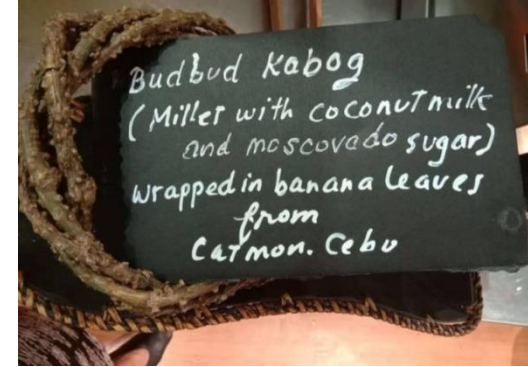 Budbud Kabog
(Millet with coconut milk
and moscovado sugar)
wrapped in banana leaves
from
Catmon. Cebu